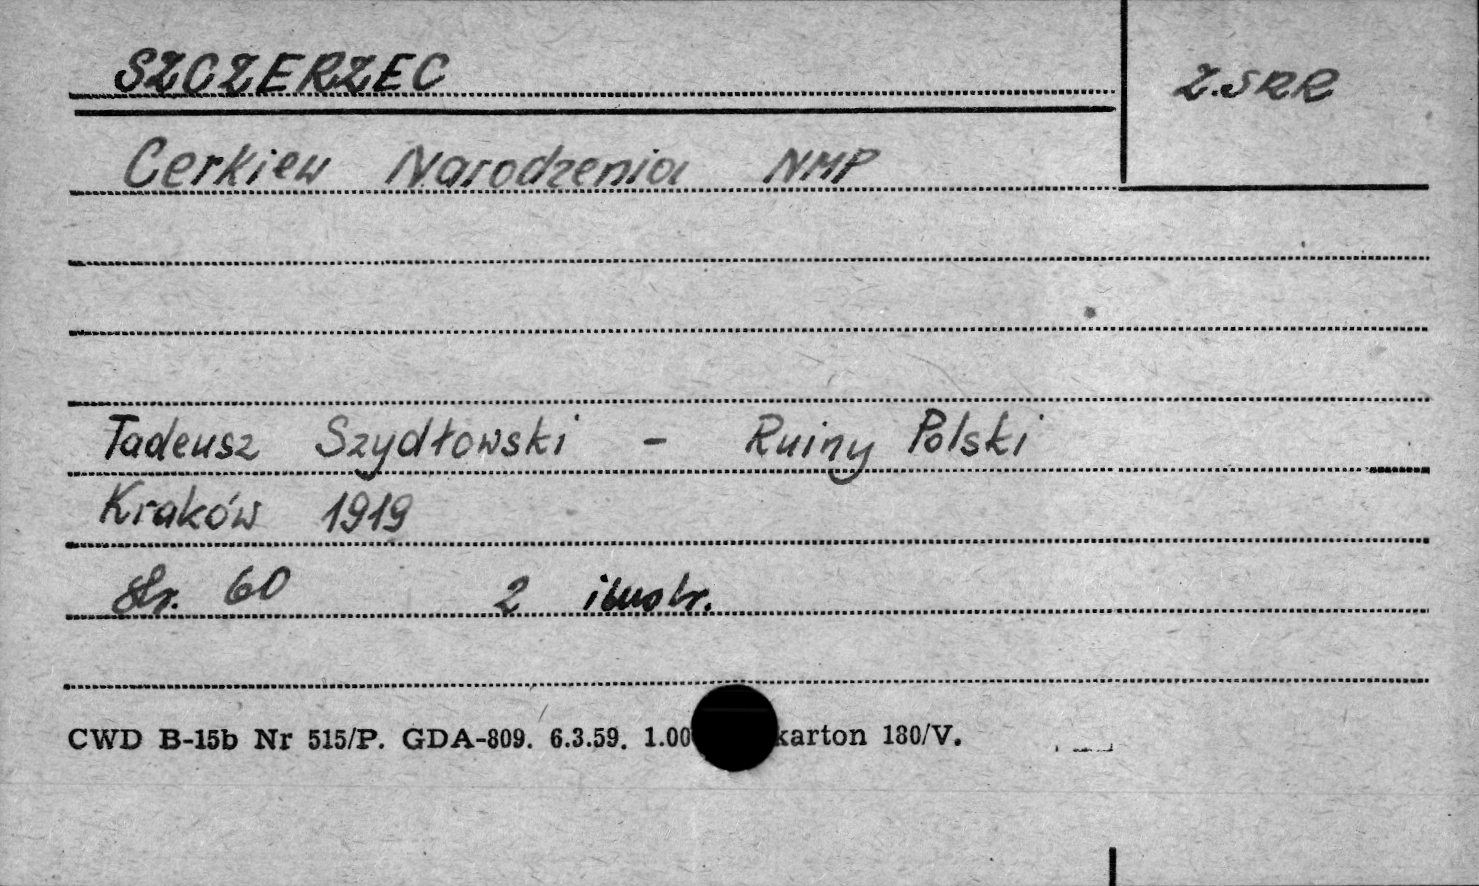 SZCZERZEC
Z.SRR
Cerkiew Narodzenia NMP
Tadeusz Szydłowski - Ruiny Polski
Kraków 1919
str. 60 2 ilustr.
CWD B-15b Nr 515/P. GDA-809. 6.3.59. 1.00 karton 180/V.